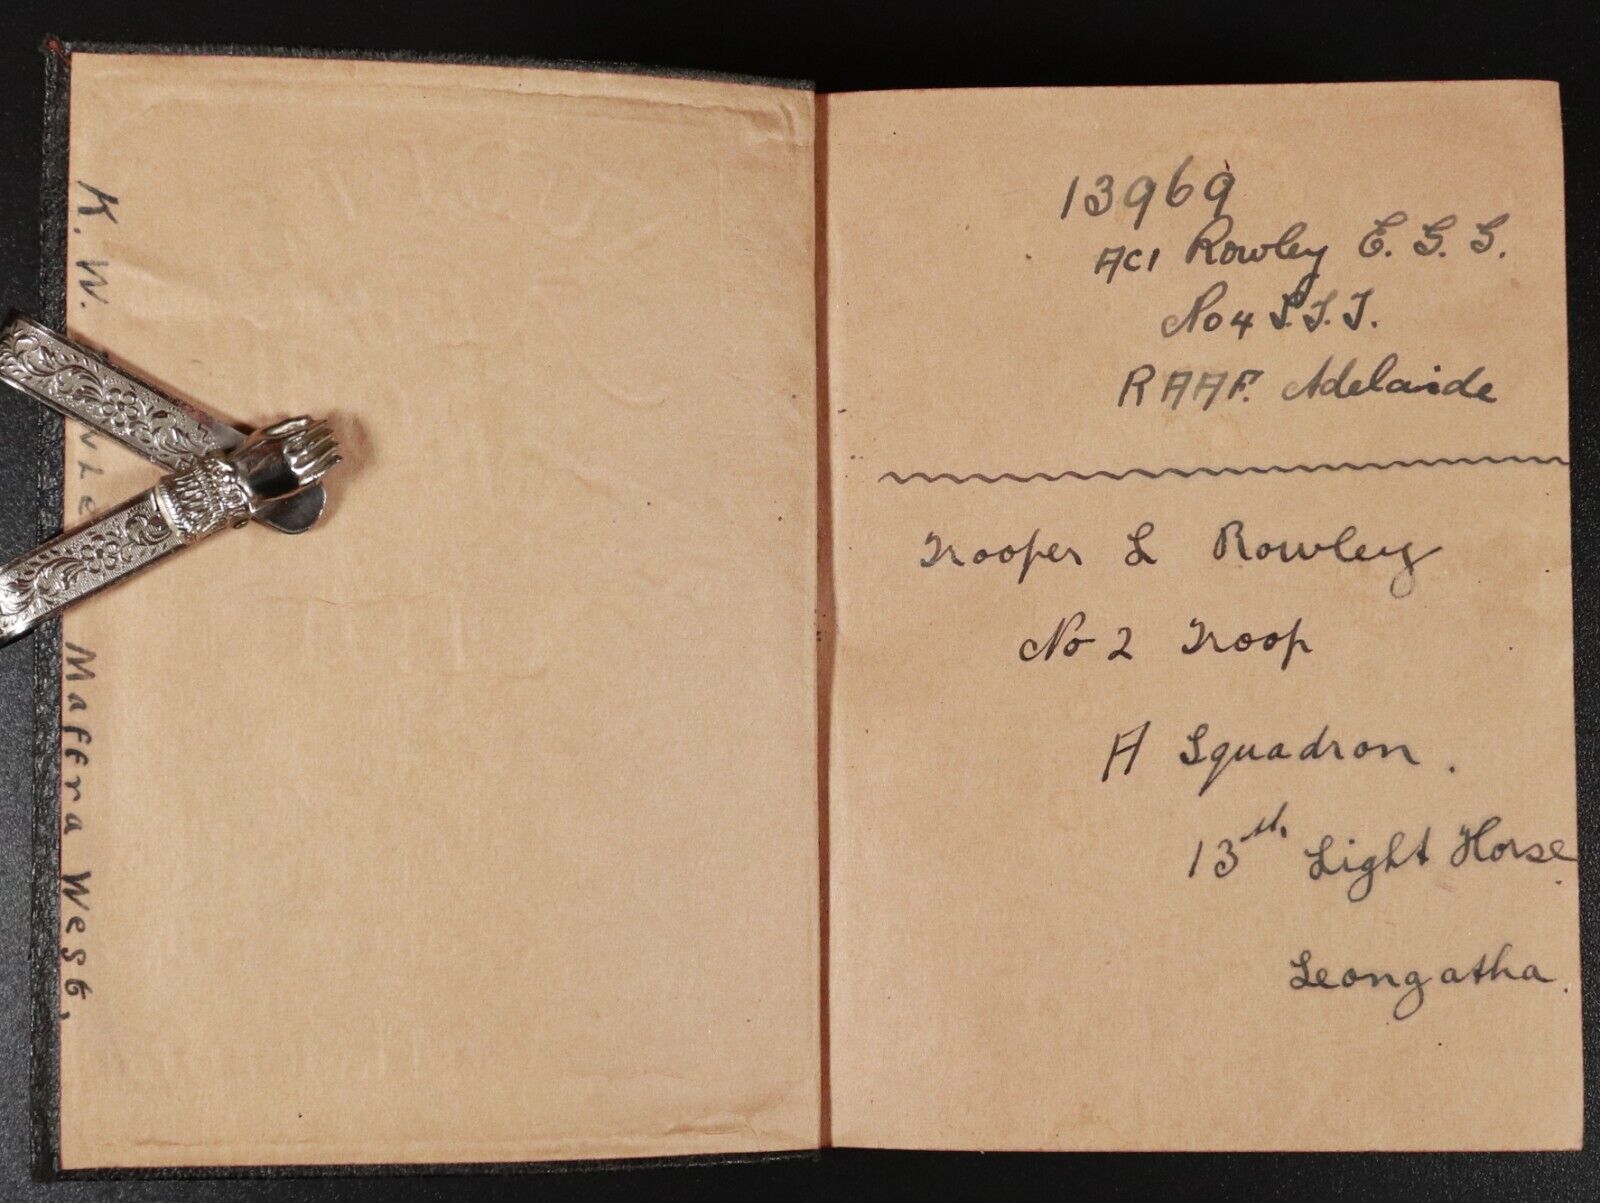 K. W.
Maffra West,
13969
AC1 Rowley E. G. G.
No 4 S.T.T.
RAAF. Adelaide
Trooper L Rowley
No 2 Troop
A Squadron.
13th Light Horse
Leongatha.